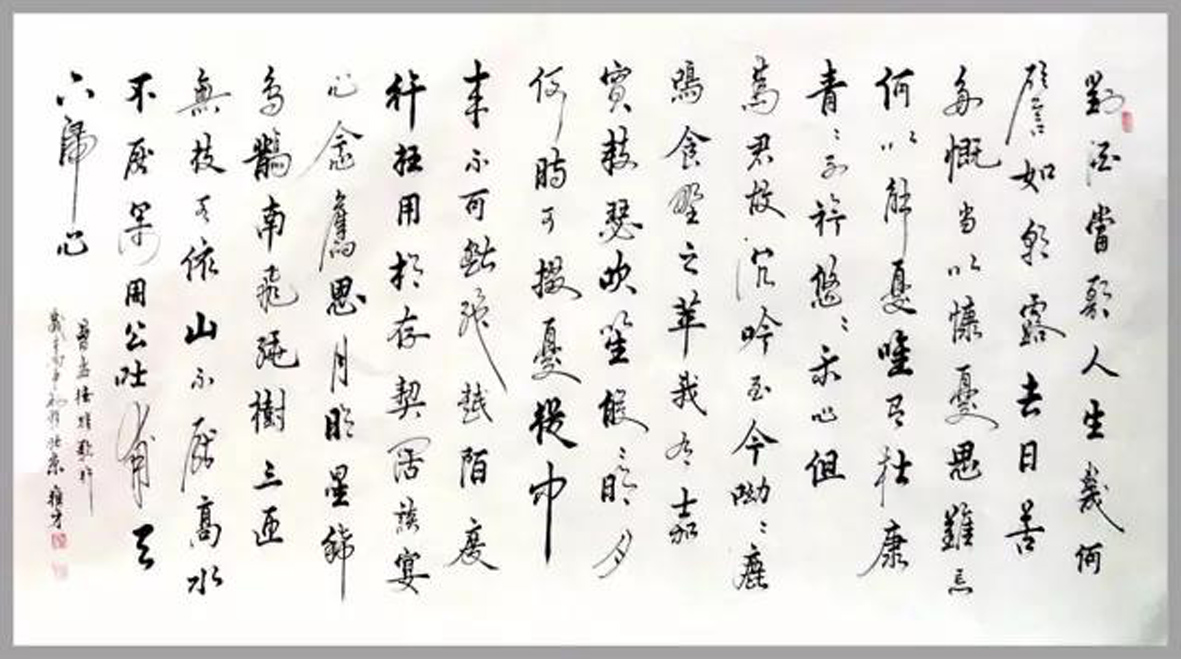 對酒當歌人生幾何
譬如朝露去日苦
多慨當以慷憂思難忘
何以解憂唯有杜康
青〻子衿悠〻我心但
為君故沉吟至今呦〻鹿
鳴食野之苹我有嘉
賓鼓瑟吹笙皎〻明月
何時可掇憂從中
來不可斷絕越陌度
阡枉用相存契闊談宴
心念舊恩月明星稀
烏鵲南飛繞樹三匝
無枝可依山不厭高水
不厭深周公吐哺天
下歸心
曹孟德短歌行
於北京